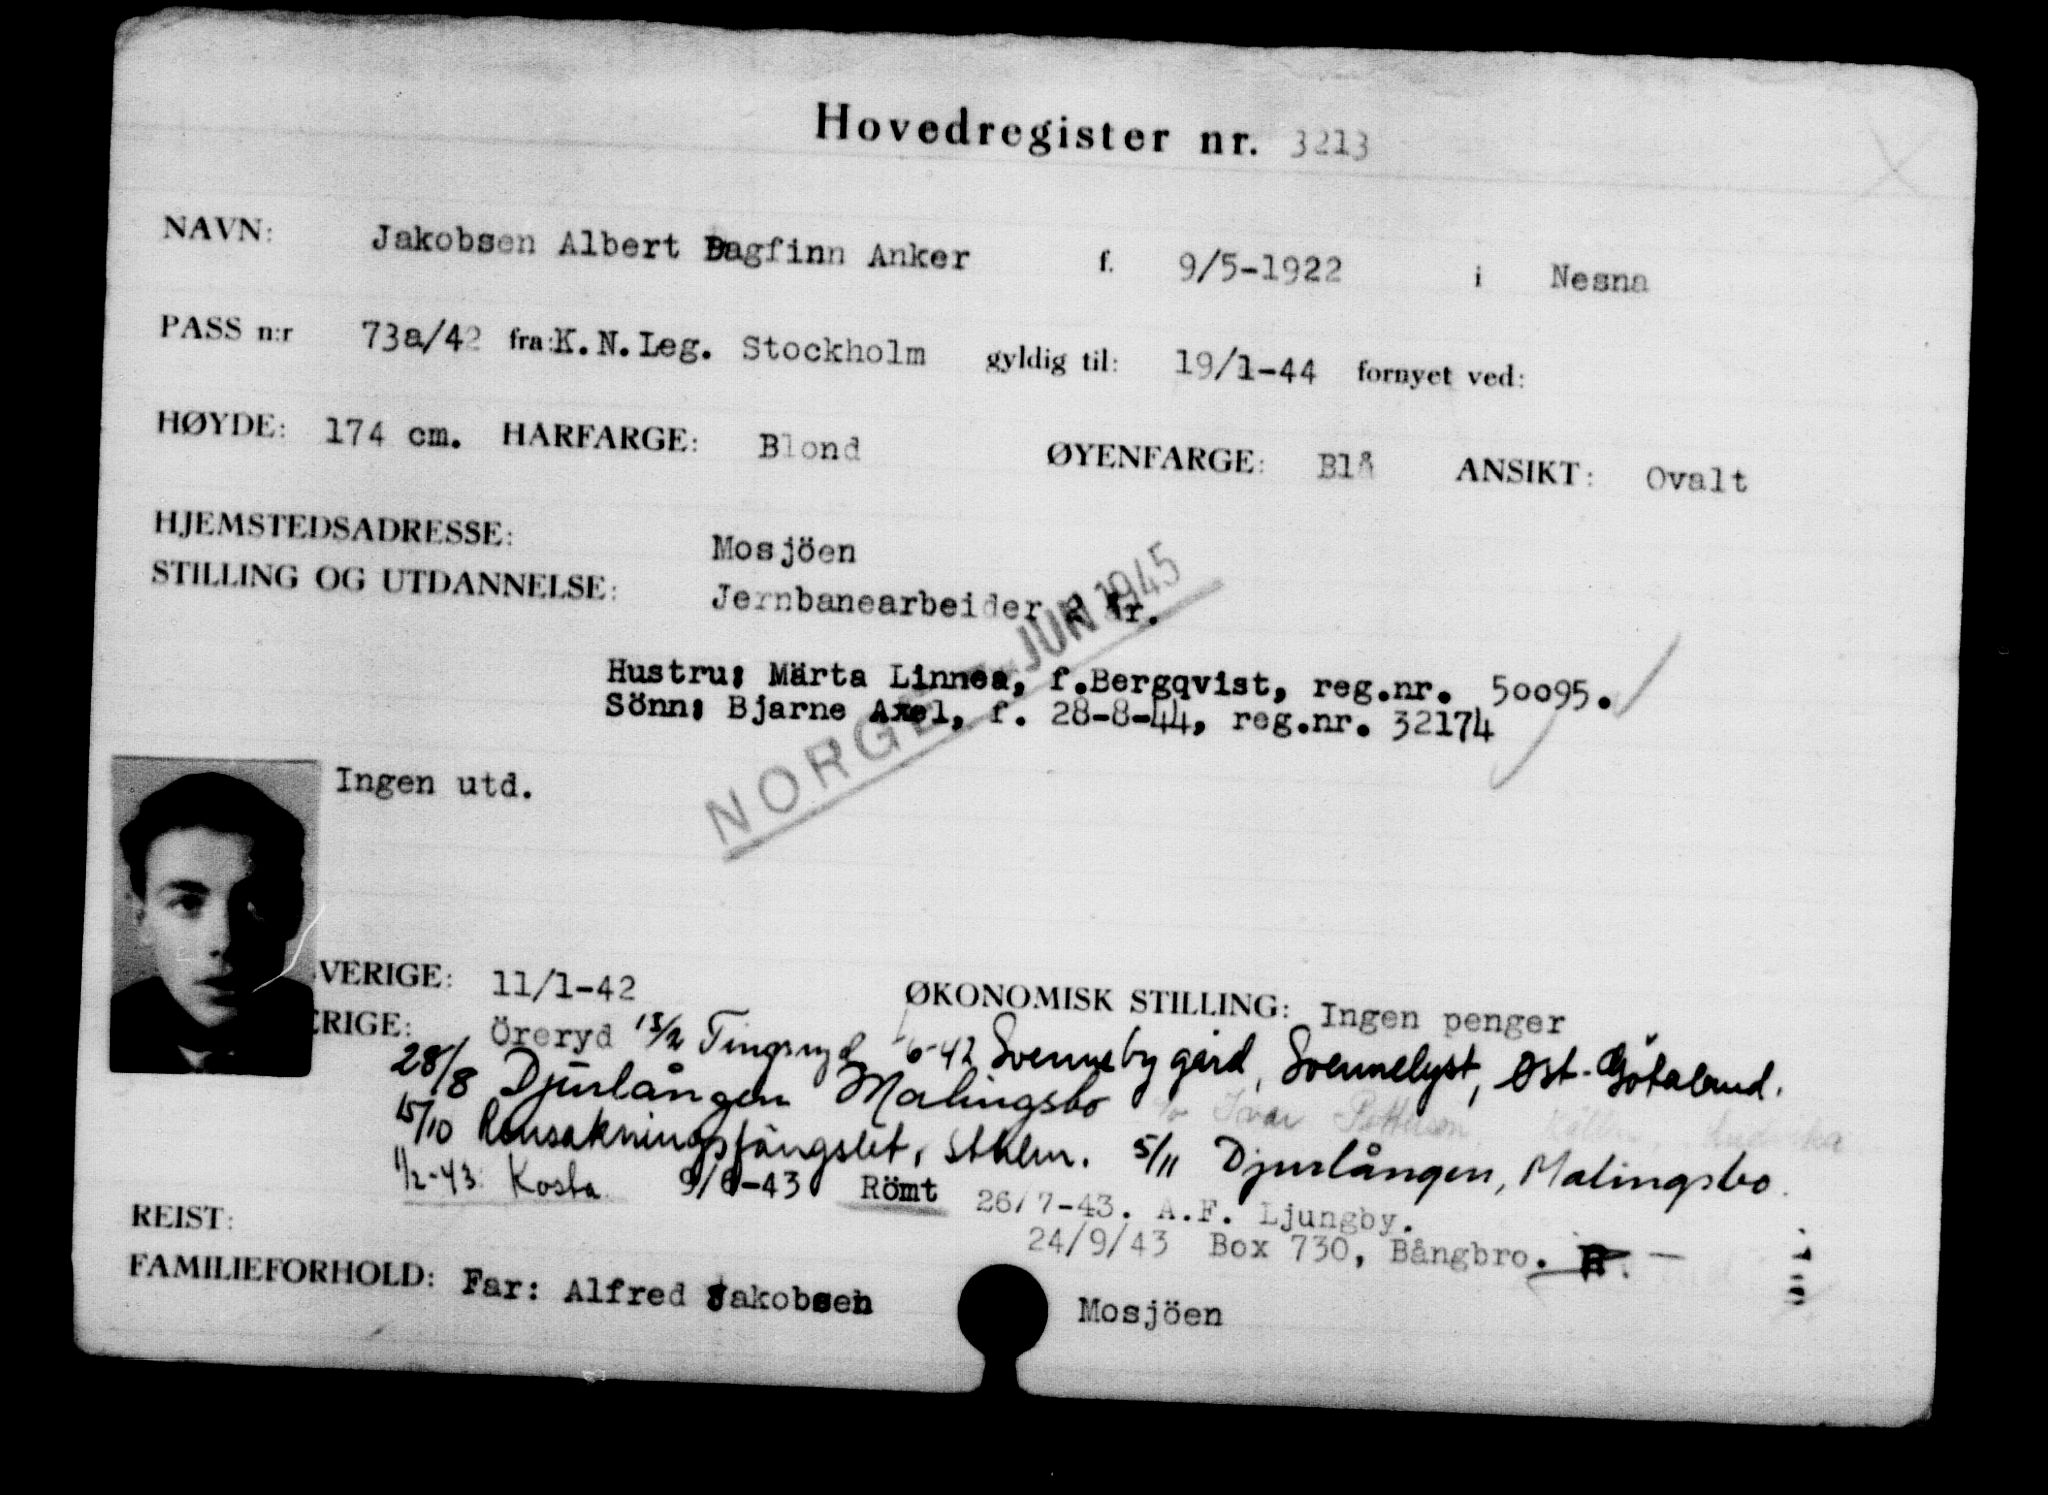 Hovedregister nr. 3213
NAVN: Jakobsen Albert Dagfinn Anker f. 9/5-1922 i Nesna
PASS n:r 73a/42 fra: K.N.Leg. Stockholm gyldig til: 19/1-44 fornyet ved:
HØYDE: 174 cm. HARFARGE: Blond ØYENFARGE: Blå ANSIKT: Ovalt
HJEMSTEDSADRESSE: Mosjöen
STILLING OG UTDANNELSE: Jernbanearbeider 2 år.
NORGE JUN 1945
Hustru: Märta Linnea, f.Bergqvist, reg.nr. 50095.
Sönn: Bjarne Axel, f. 28-8-44, reg.nr. 32174
Ingen utd.
VERIGE: 11/1-42 ØKONOMISK STILLING: Ingen penger
ERIGE: Öreryd 13/2 Tingsryd 6-42 Svenneby gård, Svennelyst, Øst-Götaland.
28/8 Djurlången Malingsbo c/o Ivar
15/10 Ransakningsfängslet, Sthlm. 5/11 Djurlången, Malingsbo.
1/2-43 Kosta 9/6-43 Römt 26/7-43. A.F. Ljungby.
REIST: 24/9/43 Box 730, Bångbro.
FAMILIEFORHOLD: Far: Alfred Jakobsen Mosjöen